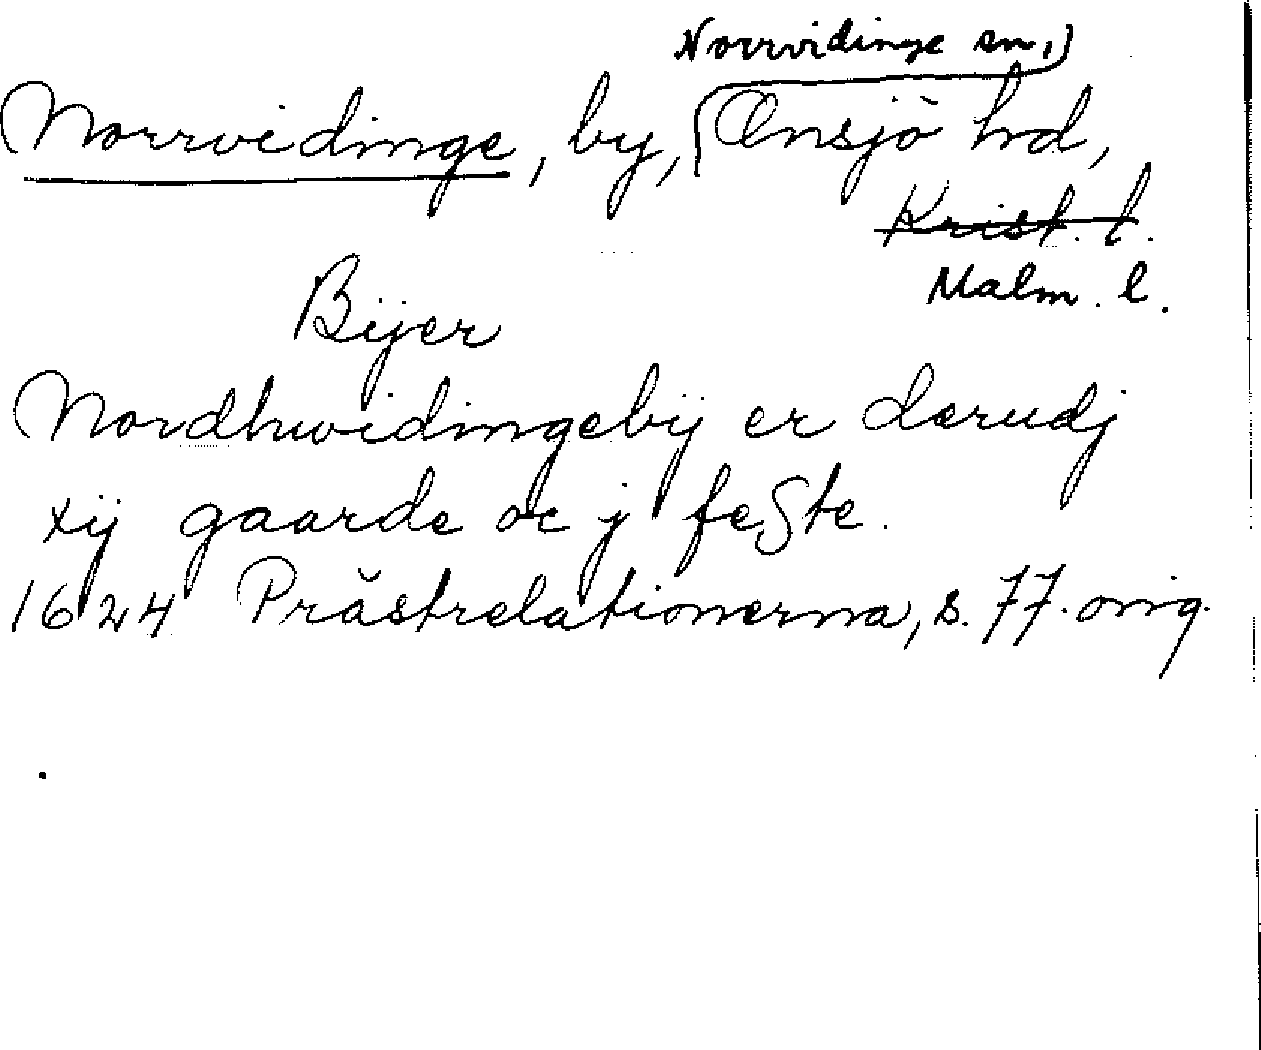 Norrvidinge sn,
Norrvidinge, by, Onsjö hd,
Krist. l.
Malm. l.
Bijer
Nordhwidingebij er derudj
xij gaarde oc j feste.
1624 Prästrelationerna, s. 77. orig.